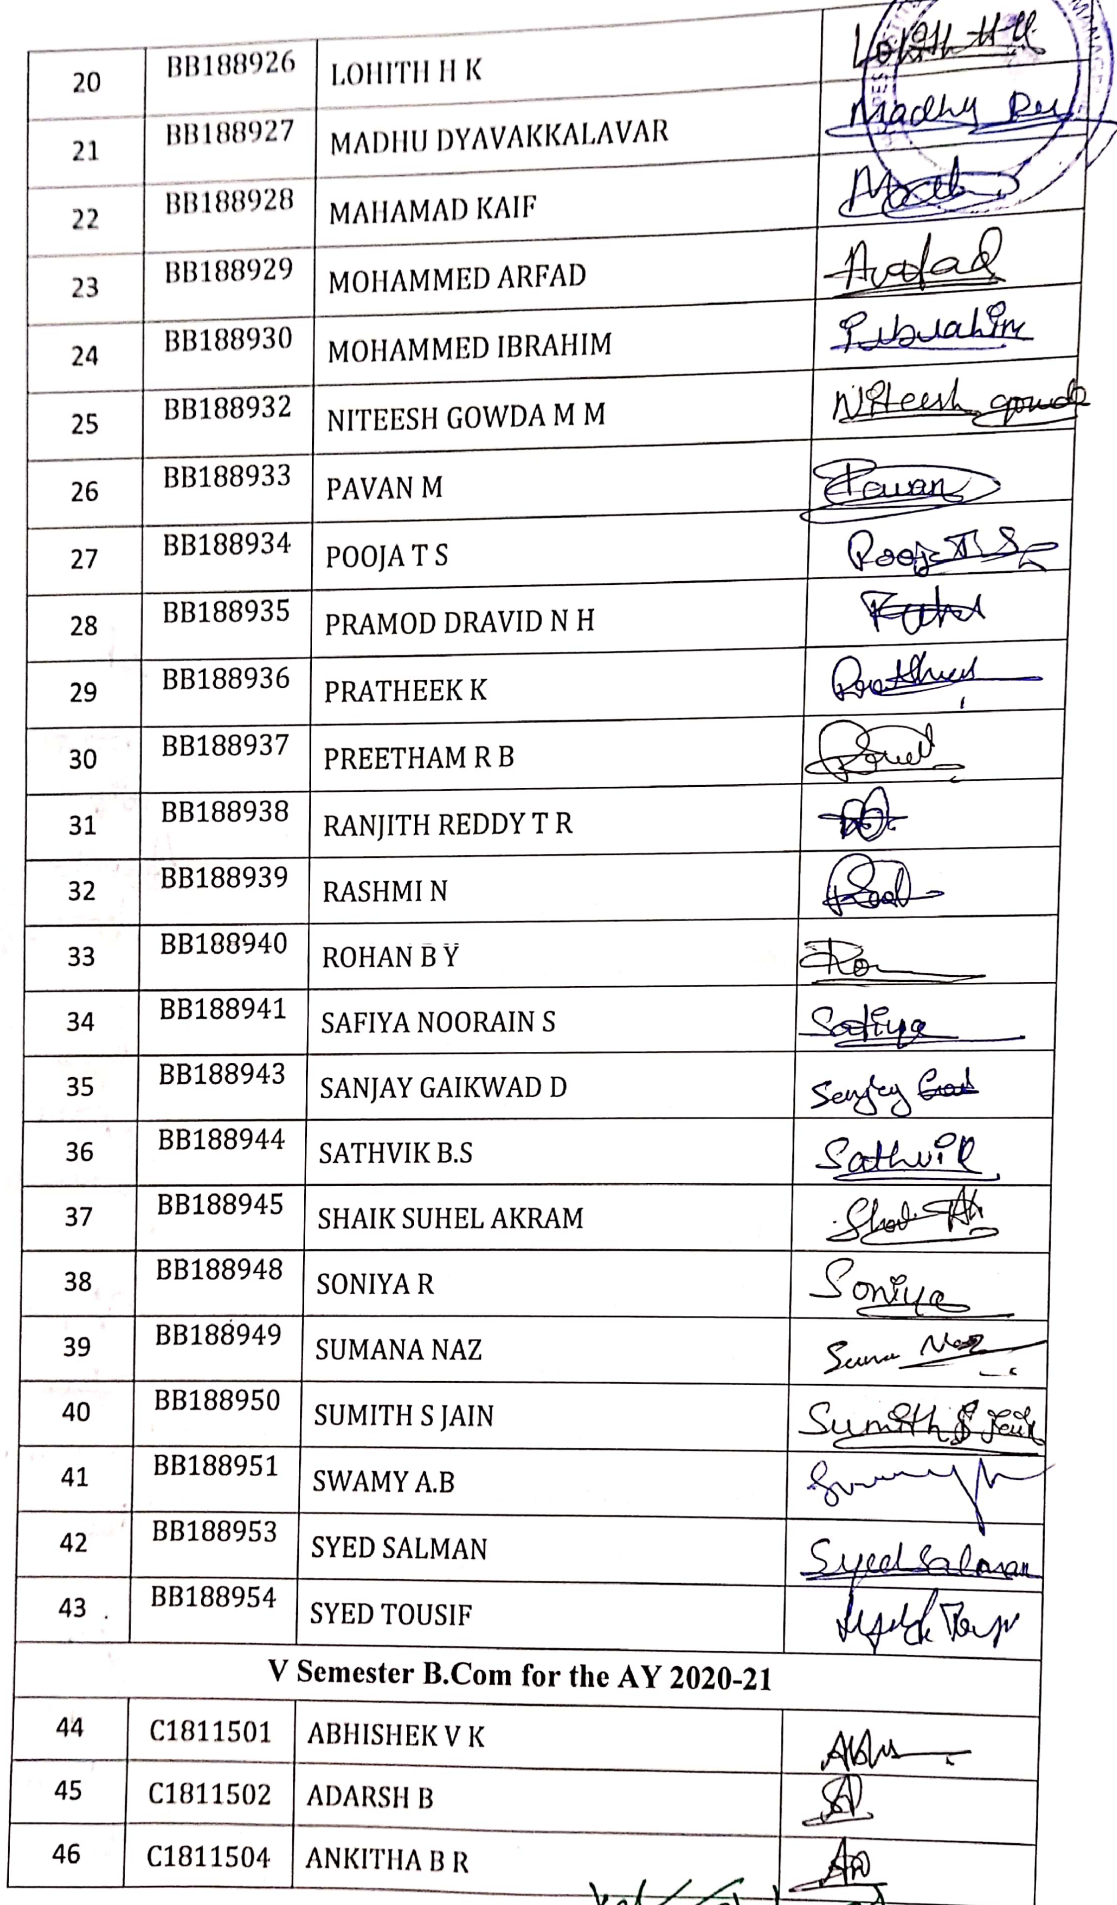 20 BB188926 LOHITH H K Lohith H K
21 BB188927 MADHU DYAVAKKALAVAR Madhu
22 BB188928 MAHAMAD KAIF
23 BB188929 MOHAMMED ARFAD Arafad
24 BB188930 MOHAMMED IBRAHIM Ibrahim
25 BB188932 NITEESH GOWDA M M Niteesh gowda
26 BB188933 PAVAN M Pavan
27 BB188934 POOJA T S Pooja T S
28 BB188935 PRAMOD DRAVID N H
29 BB188936 PRATHEEK K
30 BB188937 PREETHAM R B
31 BB188938 RANJITH REDDY T R
32 BB188939 RASHMI N
33 BB188940 ROHAN B Y
34 BB188941 SAFIYA NOORAIN S Safiya
35 BB188943 SANJAY GAIKWAD D Sanjay
36 BB188944 SATHVIK B.S Sathvik
37 BB188945 SHAIK SUHEL AKRAM
38 BB188948 SONIYA R Soniya
39 BB188949 SUMANA NAZ Naz
40 BB188950 SUMITH S JAIN Sumith S Jain
41 BB188951 SWAMY A.B
42 BB188953 SYED SALMAN Syed Salman
43 BB188954 SYED TOUSIF
V Semester B.Com for the AY 2020-21
44 C1811501 ABHISHEK V K
45 C1811502 ADARSH B
46 C1811504 ANKITHA B R